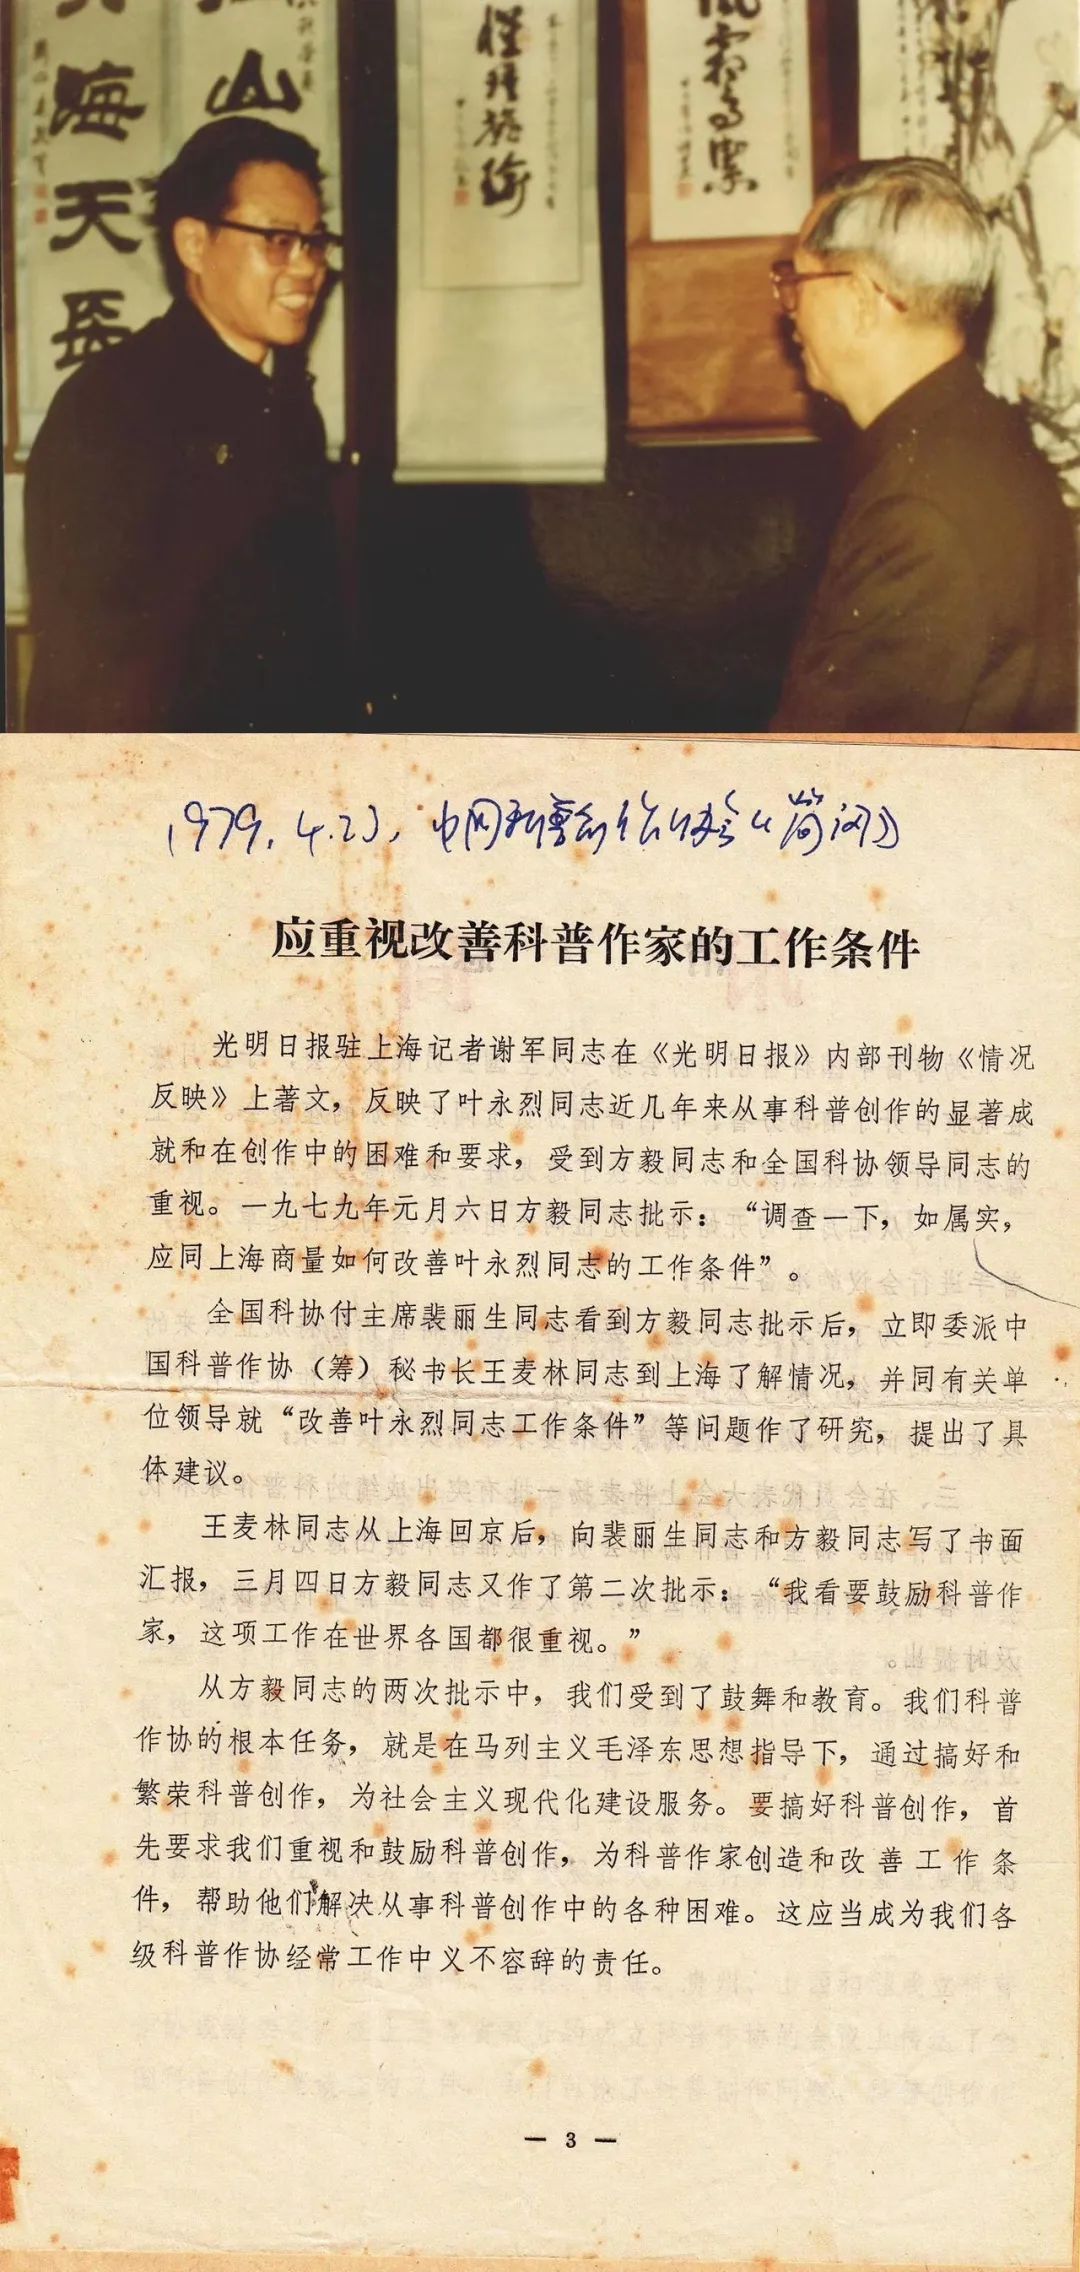 海天長
山
風
1979.4.23，中国科普创作协会《简讯》
应重视改善科普作家的工作条件
光明日报驻上海记者谢军同志在《光明日报》内部刊物《情况
反映》上著文，反映了叶永烈同志近几年来从事科普创作的显著成
就和在创作中的困难和要求，受到方毅同志和全国科协领导同志的
重视。一九七九年元月六日方毅同志批示：“调查一下，如属实，
应同上海商量如何改善叶永烈同志的工作条件”。
全国科协付主席裴丽生同志看到方毅同志批示后，立即委派中
国科普作协（筹）秘书长王麦林同志到上海了解情况，并同有关单
位领导就“改善叶永烈同志工作条件”等问题作了研究，提出了具
体建议。
王麦林同志从上海回京后，向裴丽生同志和方毅同志写了书面
汇报，三月四日方毅同志又作了第二次批示：“我看要鼓励科普作
家，这项工作在世界各国都很重视。”
从方毅同志的两次批示中，我们受到了鼓舞和教育。我们科普
作协的根本任务，就是在马列主义毛泽东思想指导下，通过搞好和
繁荣科普创作，为社会主义现代化建设服务。要搞好科普创作，首
先要求我们重视和鼓励科普创作，为科普作家创造和改善工作条
件，帮助他们解决从事科普创作中的各种困难。这应当成为我们各
级科普作协经常工作中义不容辞的责任。
— 3 —